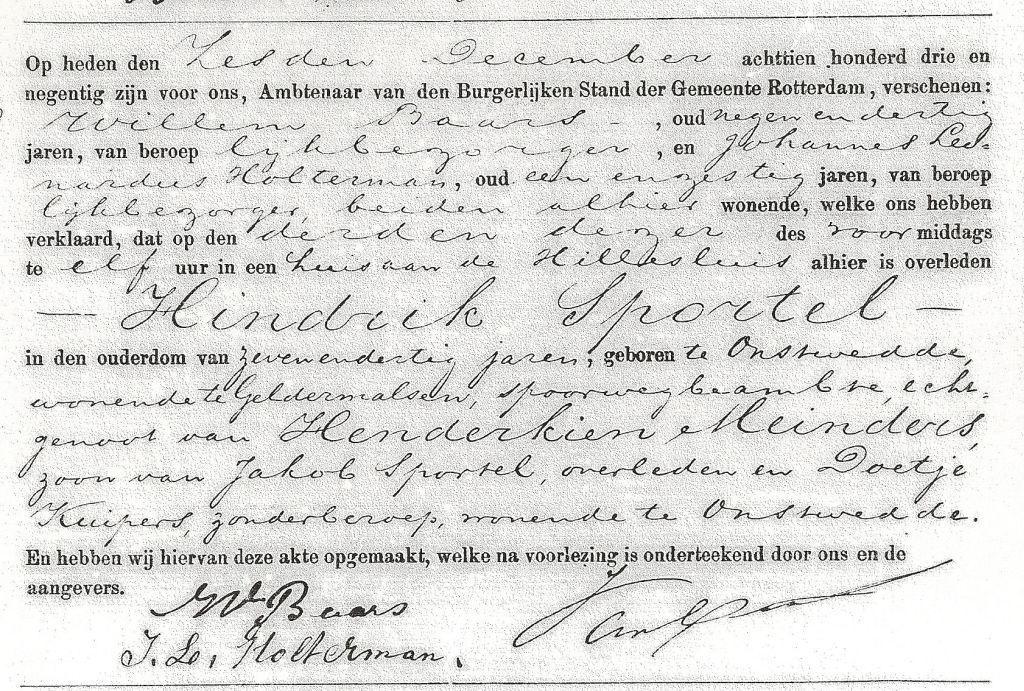 Op heden den Zesden December achttien honderd drie en
negentig zijn voor ons, Ambtenaar van den Burgerlijken Stand der Gemeente Rotterdam, verschenen:
Willem Baars - , oud negen en dertig
jaren, van beroep lijkbezorger, en Johannes Leo-
nardus Holterman, oud een en zestig jaren, van beroep
lijkbezorger, beiden alhier wonende, welke ons hebben
verklaard, dat op den derden dezer des voormiddags
te elf uur in een huis aan de Hillesluis alhier is overleden
— Hindrik Sportel —
in den ouderdom van zevenendertig jaren, geboren te Onstwedde,
wonende te Geldermalsen, spoorwegbeambte, echt-
genoot van Henderkien Meinders,
zoon van Jakob Sportel, overleden en Doetje
Kuipers, zonder beroep, wonende te Onstwedde.
En hebben wij hiervan deze akte opgemaakt, welke na voorlezing is onderteekend door ons en de
aangevers.
W. Baars
J. L. Holterman.